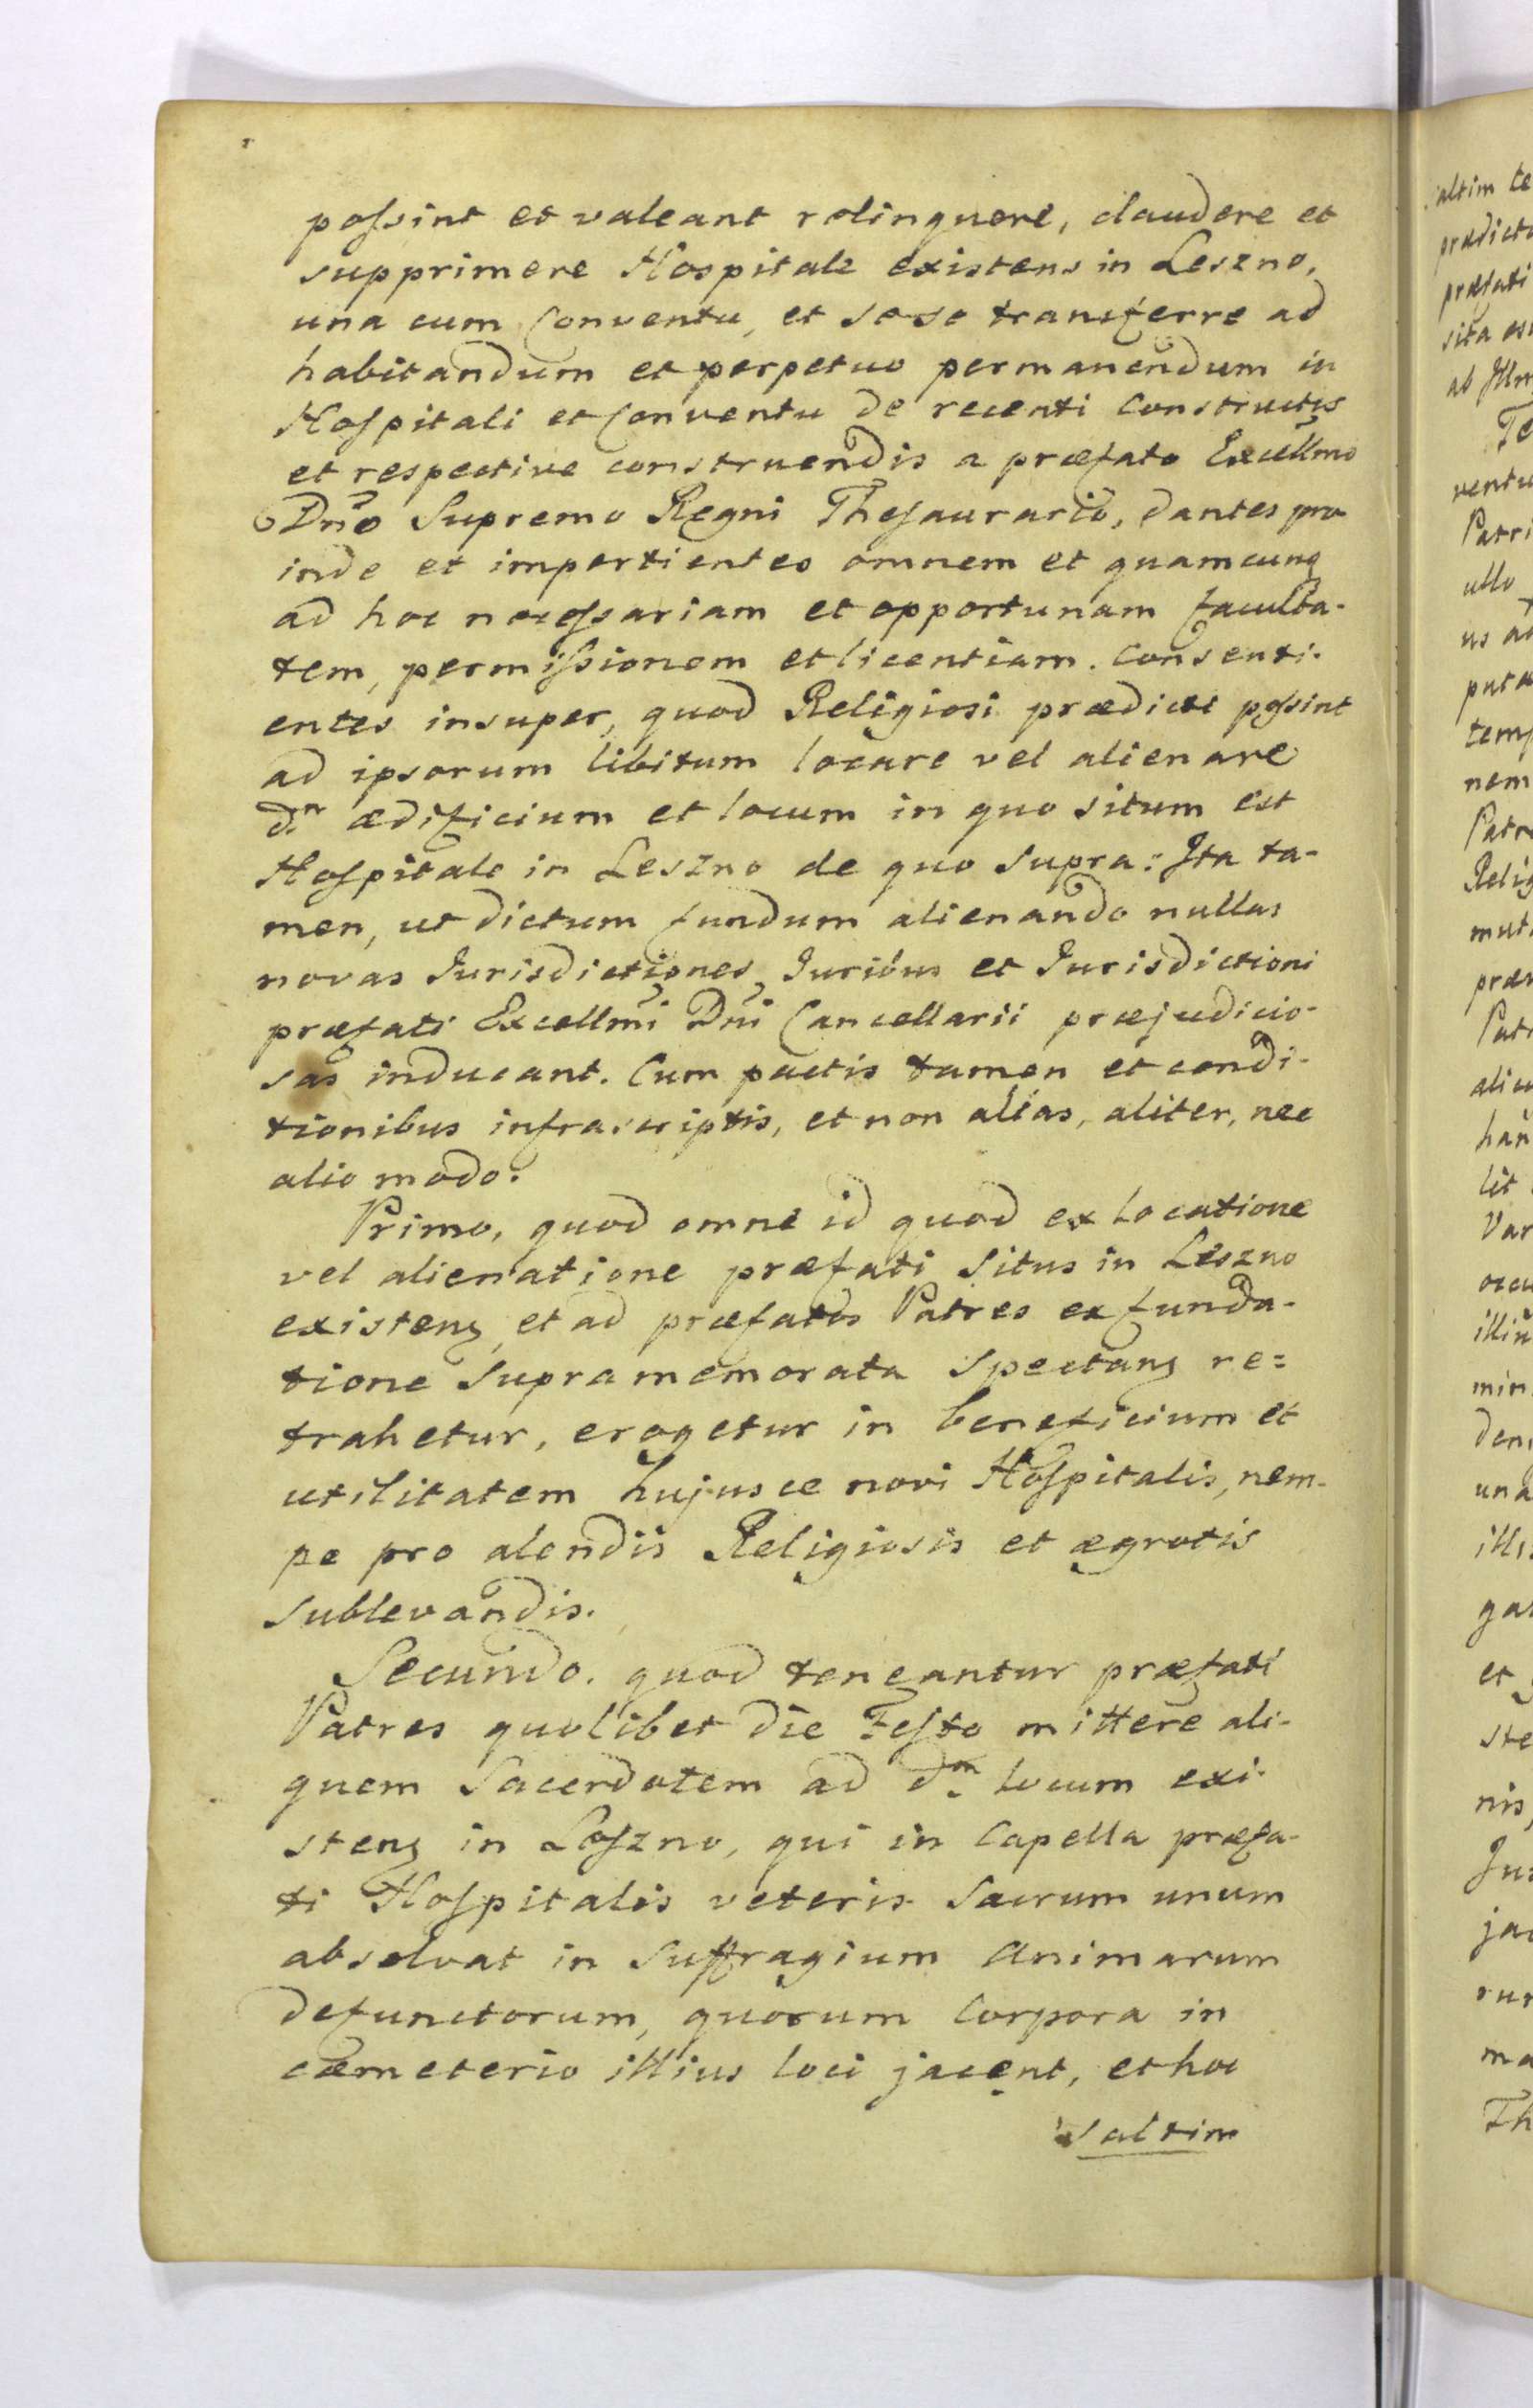 possint et valeant relinquere, claudere et
supprimere Hospitale existens in Leszno,
una cum Conventu, et sese transferre ad
habitandum et perpetuo permanendum in
Hospitali et Conventu de recenti constructis
et respective construendis a præfato Excellmo
Dnõ Supremo Regni Thesaurario, dantes pro
inde et impertientes omnem et quamcunq
ad hoc necessariam et opportunam faculta-
tem, permissionem et licentiam. Consenti-
entes insuper, quod Religiosi prædicti possint
ad ipsorum libitum locare vel alienare
d.m ædificium et locum in quo situm est
Hospitale in Leszno de quo supra: Ita ta-
men, ut dictum fundum alienando nullas
novas Jurisdictiones, Juribus et Jurisdictioni
præfati Excellmi Dni Cancellarii præjudicio-
sas inducant. Cum pactis tamen et condi-
tionibus infrascriptis, et non alias, aliter, nec
alio modo.
Primo, quod omne id quod ex locatione
vel alienatione præfati situs in Leszno
existens, et ad præfatos Patres ex funda-
tione supra memorata spectans re=
trahetur, erogetur in beneficium et
utilitatem hujusce novi Hospitalis, nem-
pe pro alendis Religiosis et ægrotis
sublevandis.
Secundo. quod teneantur præfati
Patres quolibet die Festo mittere ali-
quem Sacerdotem ad d.m locum exi-
stens in Leszno, qui in Capella præfa-
ti Hospitalis veteris Sacrum unum
absolvat in Suffragium Animarum
defunctorum, quorum Corpora in
cæmeterio illius loci jacent, et hoc
saltim
altim te
prædict
præfati
sita es
ab Illm
Te
ventu
Patri
ullo
us ad
puta
temp
nem
Patr
Relig
mut
præ
Pat
alic
han
lit
Var
occu
illiu
min
den
una
illi
ga
et
ste
nis,
Jus
jac
rur
ma
Th